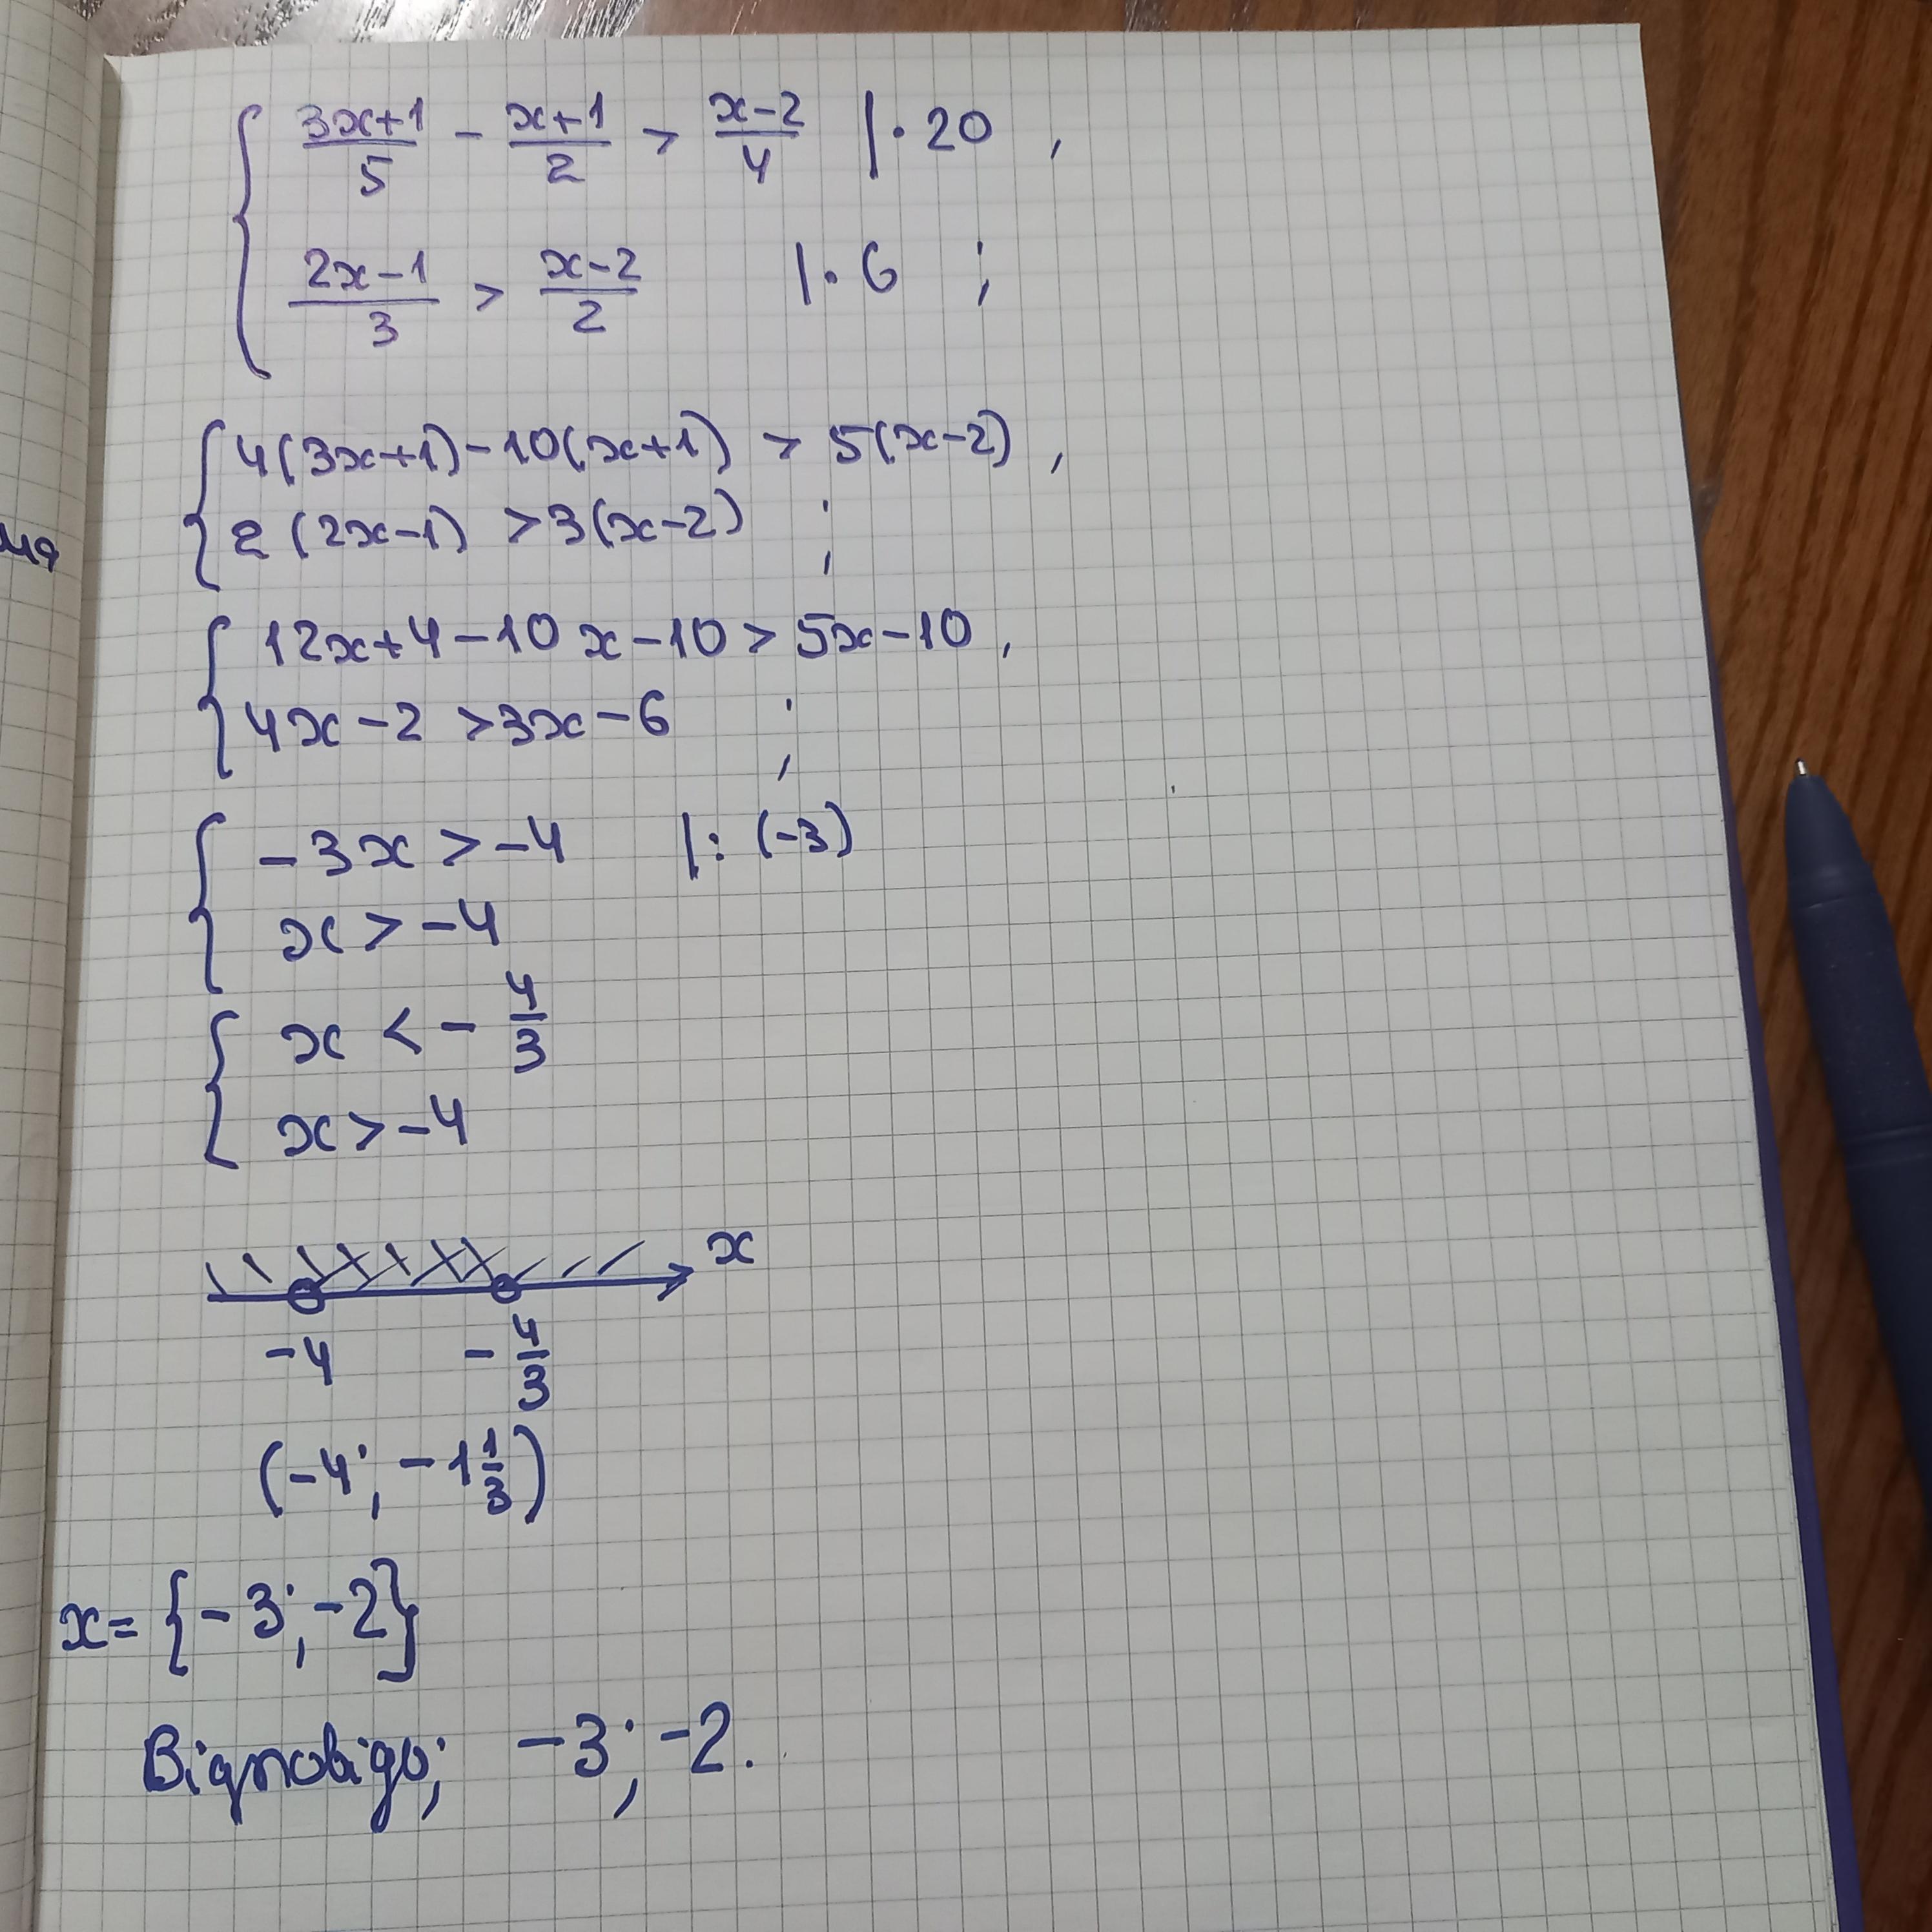 { (3x+1)/5 - (x+1)/2 > (x-2)/4 |·20 ,
(2x-1)/3 > (x-2)/2 |·6 ;
{ 4(3x+1)-10(x+1) > 5(x-2) ,
2(2x-1) > 3(x-2) ;
{ 12x+4-10x-10 > 5x-10 ,
4x-2 > 3x-6 ;
{ -3x > -4 |:(-3)
x > -4
{ x < -4/3
x > -4
x
-4 -4/3
(-4; -1 1/3)
x = {-3; -2}
Відповідь; -3; -2.